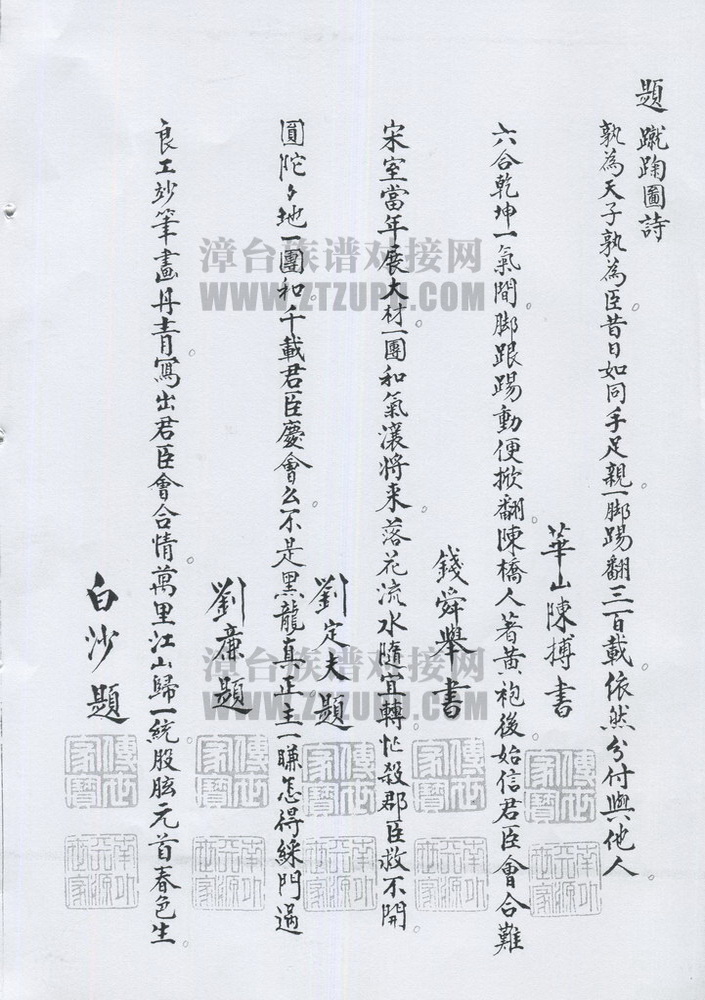 題蹴踘圖詩
孰為天子孰為臣昔日如同手足親。一脚踢翻三百載。依然分付與他人。
華山陳摶書
六合乾坤一氣間。脚跟踢動便掀翻。陳橋人著黃袍後。始信君臣會合難
錢舜舉書
宋室當年展大材。一團和氣瀼將来。落花流水隨宜轉。忙殺郡臣救不開。
劉定夫題
圓陀々地一團和。千載君臣慶會么。不是黑龍真正主。一賺怎得綵門過
劉廉題
良工妙筆畫丹青。寫出君臣會合情。萬里江山歸一統。股肱元首春色生。
白沙題
傳世家寶
傳世家寶
傳世家寶
傳世家寶
傳世家寶
漳台族谱对接网
WWW.ZTZUPU.COM
漳台族谱对接网
WWW.ZTZUPU.COM